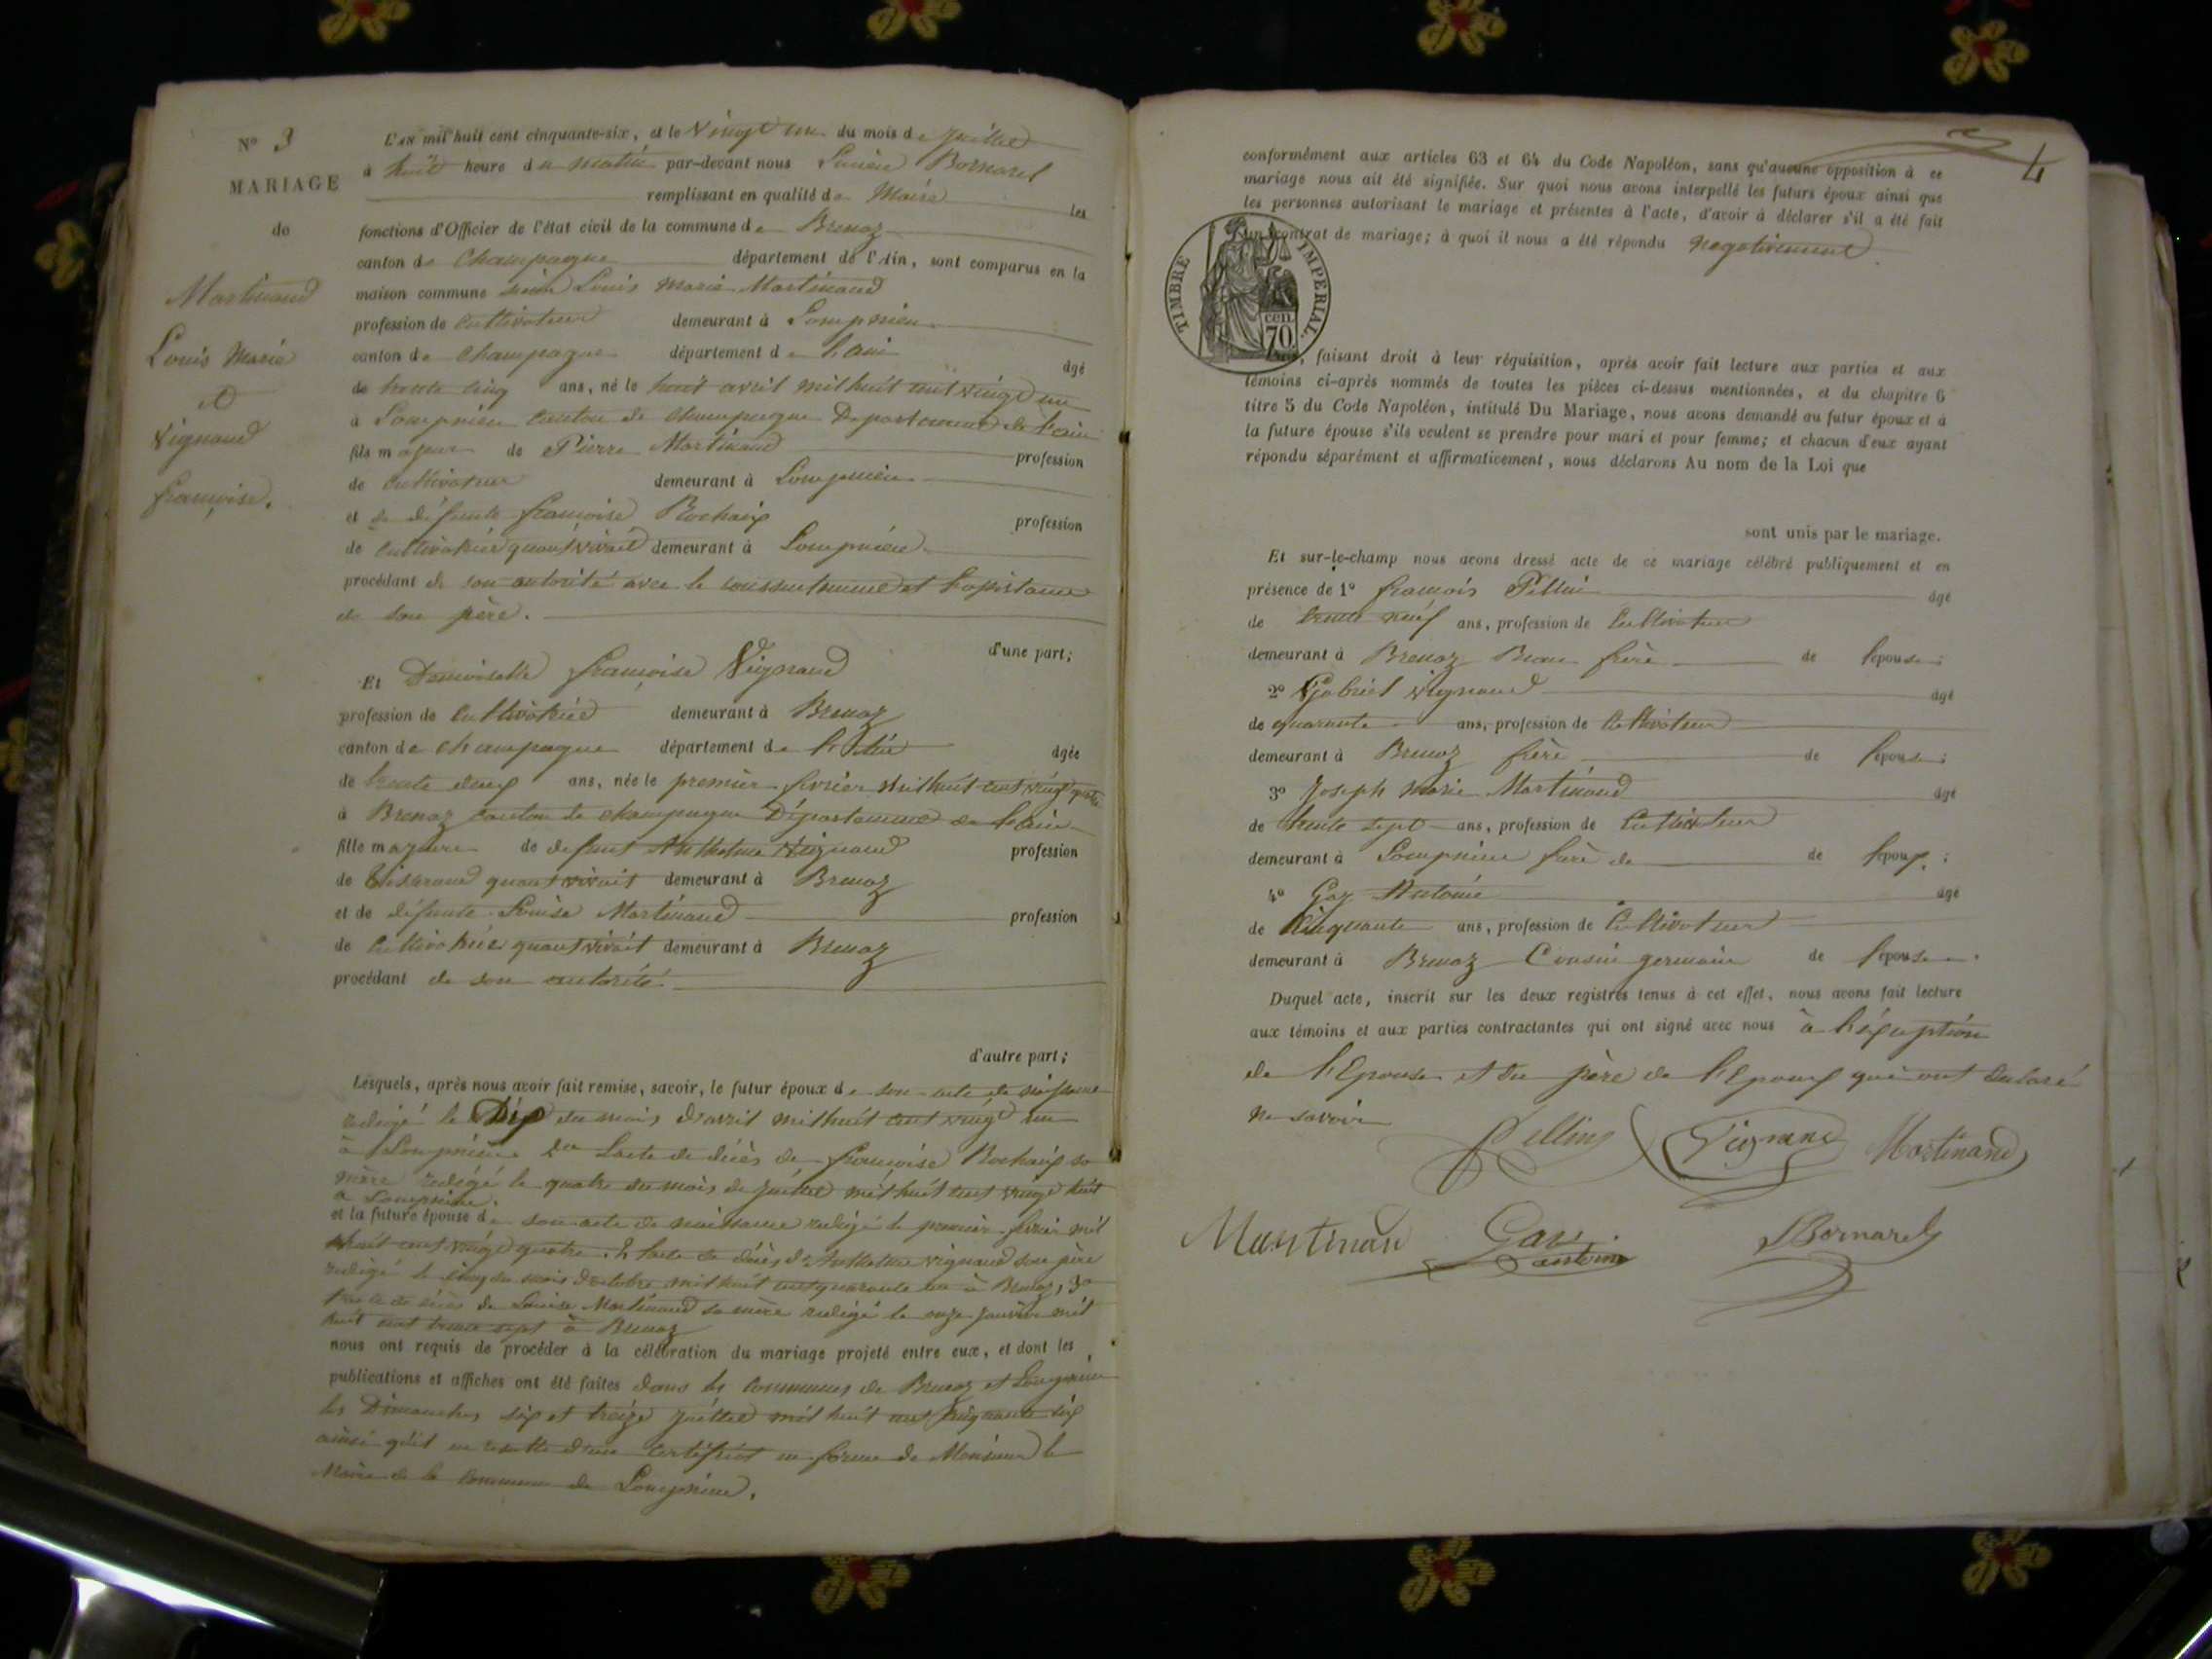 N° 3
MARIAGE
de
Martinand
Louis Marie
et
Vignand
françoise.
L'AN mil huit cent cinquante-six, et le Vingt un du mois de Juillet
à huit heure du matin par-devant nous Bornarel
remplissant en qualité de Maire les
fonctions d'Officier de l'état civil de la commune de Brenaz
canton de Champagne département de l'Ain, sont comparus en la
maison commune sieur Louis Marie Martinand
profession de Cultivateur demeurant à Lompnieu
canton de Champagne département de l'ain âgé
de trente cinq ans, né le huit avril mil huit cent vingt un
à Lompnieu Canton de Champagne Département de l'ain
fils majeur de Pierre Martinand profession
de Cultivateur demeurant à Lompnieu
et de défunte françoise Rochaix profession
de Cultivatrice quant vivait demeurant à Lompnieu
procédant de son autorité avec le consentement et l'assistance
de son père.
d'une part;
Et Demoiselle françoise Vignand
profession de Cultivatrice demeurant à Brenaz
canton de Champagne département de l'Ain âgée
de trente deux ans, née le premier fevrier mil huit cent vingt quatre
à Brenaz canton de Champagne Département de l'ain
fille majeure de defunt Anthelme Vignand profession
de tisserand quant vivait demeurant à Brenaz
et de défunte Louise Martinand profession
de Cultivatrice quant vivait demeurant à Brenaz
procédant de son autorité
d'autre part;
Lesquels, après nous avoir fait remise, savoir, le futur époux de son acte de naissance
redigé le Dix du mois d'avril mil huit cent vingt un
à Lompnieu 2° L'acte de décès de françoise Rochaix sa
mère redigé le quatre du mois de Juillet mil huit cent vingt huit
à Lompnieu.
et la future épouse de son acte de naissance redigé le premier fevrier mil
huit cent vingt quatre. 2 L'acte de décès d'Anthelme Vignand son père
redigé le cinq du mois d'octobre mil huit cent quarante un à Brenaz, 3°
l'acte de décès de Louise Martinand sa mère redigé le onze Janvier mil
huit cent trente sept à Brenaz
nous ont requis de procéder à la célébration du mariage projeté entre eux, et dont les
publications et affiches ont été faites dans les communes de Brenaz et Lompnieu
les Dimanches six et treize Juillet mil huit cent cinquante six
ainsi qu'il en resulte d'un certificat en forme de Monsieur le
Maire de la commune de Lompnieu.
4
conformément aux articles 63 et 64 du Code Napoléon, sans qu'aucune opposition à ce
mariage nous ait été signifiée. Sur quoi nous avons interpellé les futurs époux ainsi que
les personnes autorisant le mariage et présentes à l'acte, d'avoir à déclarer s'il a été fait
un contrat de mariage; à quoi il nous a été répondu negativement
TIMBRE IMPÉRIAL.
cen.
70
, faisant droit à leur réquisition, après avoir fait lecture aux parties et aux
témoins ci-après nommés de toutes les pièces ci-dessus mentionnées, et du chapitre 6
titre 5 du Code Napoléon, intitulé Du Mariage, nous avons demandé au futur époux et à
la future épouse s'ils veulent se prendre pour mari et pour femme; et chacun d'eux ayant
répondu séparément et affirmativement, nous déclarons Au nom de la Loi que
sont unis par le mariage.
Et sur-le-champ nous avons dressé acte de ce mariage célébré publiquement et en
présence de 1° françois Pellin âgé
de trente neuf ans, profession de Cultivateur
demeurant à Brenaz Beau frère de l'épouse;
2° Gabriel Vignand âgé
de quarante ans, profession de Cultivateur
demeurant à Brenaz frère de l'épouse;
3° Joseph Marie Martinand âgé
de trente sept ans, profession de Cultivateur
demeurant à Lompnieu frère de de l'époux;
4° Gay Antoine âgé
de Cinquante ans, profession de Cultivateur
demeurant à Brenaz Cousin germain de l'épouse.
Duquel acte, inscrit sur les deux registres tenus à cet effet, nous avons fait lecture
aux témoins et aux parties contractantes qui ont signé avec nous à l'exception
de l'Epouse et du père de l'Epoux qui ont declaré
ne savoir
Pellin Vignand Martinand
Martinand Gay antoine Bornarel